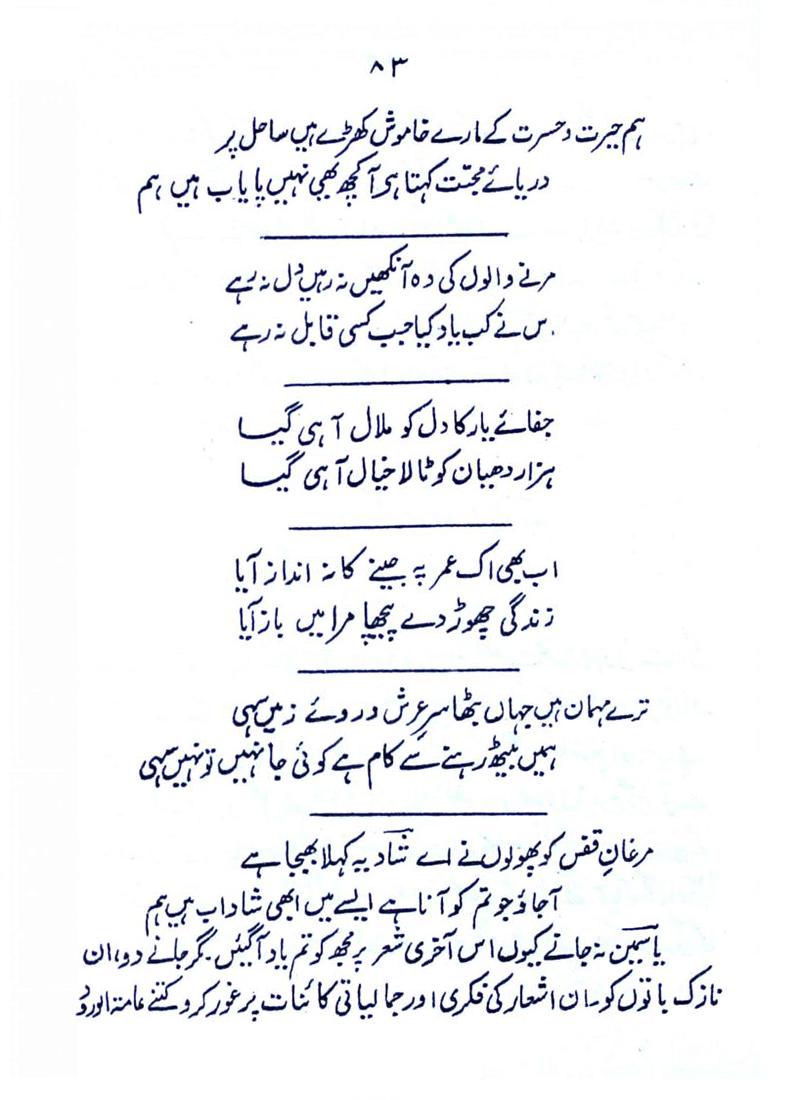 ۸۳
ہم حیرت و حسرت کے مارے خاموش کھڑے ہیں ساحل پر
دریائے محبّت کہتا ہے آ کچھ بھی نہیں پایاب ہیں ہم
مرنے والوں کی وہ آنکھیں نہ رہیں دل نہ رہے
س نے کب یاد کیا جب کسی قابل نہ رہے
جفائے یار کا دل کو ملال آ ہی گیا
ہزار دھیان کو ٹالا خیال آ ہی گیا
اب بھی اک عمر پہ جینے کا نہ انداز آیا
زندگی چھوڑ دے پیچھا مرا میں باز آیا
ترے مہمان ہیں جہاں بٹھا سرِ عرش و روئے زمیں سہی
ہمیں بیٹھ رہنے سے کام ہے کوئی جا نہیں تو نہیں سہی
مرغانِ قفس کو پھولوں نے اے شاد یہ کہلا بھیجا ہے
آجاؤ جو تم کو آنا ہے ایسے میں ابھی شاداب ہیں ہم
یاسمین نہ جانے کیوں اس آخری شعر پر مجھ کو تم یاد آگئیں۔ گر جانے دو، ان
نازک باتوں کو۔ ان اشعار کی فکری اور جمالیاتی کائنات پر غور کرو کتنے عامۃ الورود